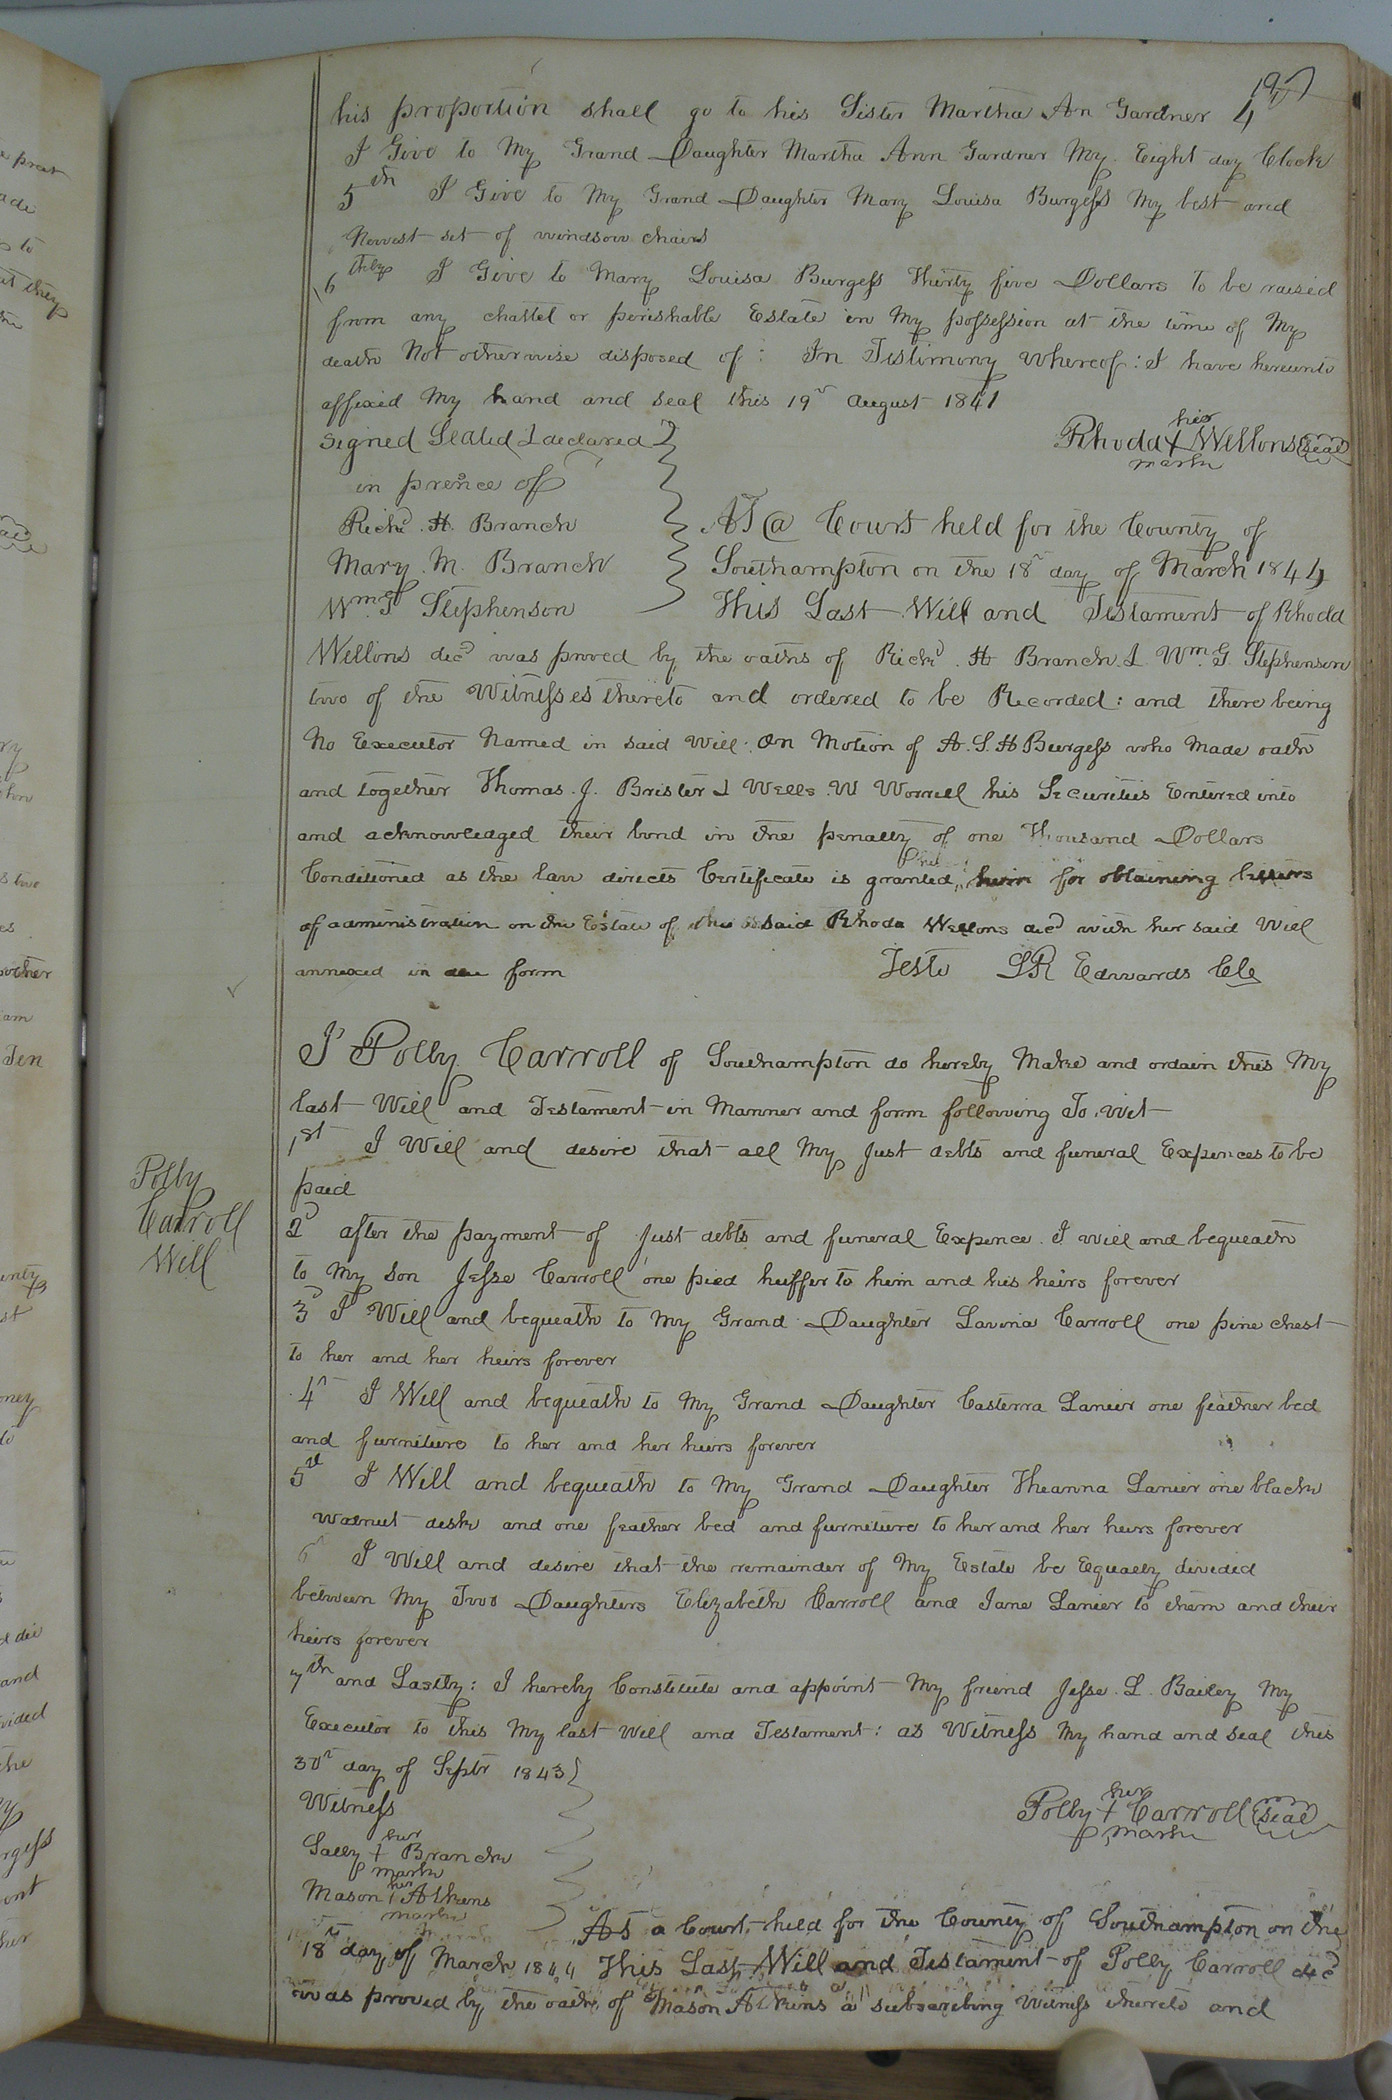 197
his proportion shall go to his Sister Martha An Gardner 4
I Give to My Grand Daughter Martha Ann Gardner My Eight day Clock
5th I Give to My Grand Daughter Mary Louisa Burgess My best and
Newest set of windsow chairs
6thly I Give to Mary Louisa Burgess Thirty five Dollars to be raised
from any chattel or perishable Estate in My possession at the time of My
death Not otherwise disposed of : In Testimony whereof : I have hereunto
affixed My hand and seal this 19th august 1841
Signed Sealed & declared
in prence of
Richd. H. Branch
Mary. M. Branch
Wm. G Stephenson
her
Rhoda + Wellons seal
mark
AT @ Court held for the County of
Southampton on the 18th day of March 1844
This Last Will and Testament of Rhoda
Wellons decd was proved by the oaths of Richd. H Branch & Wm. G Stephenson
two of the Witnesses thereto and ordered to be Recorded : and there being
No Executor Named in said Will : On Motion of A. S. H Burgess who Made oath
and together Thomas. J. Brister & Wells. W Worrell his Securities Entered into
and acknowledged their bond in the penalty of one Thousand Dollars
Conditioned as the law directs Certificate is granted him for obtaining letters
of administration on the Estate of the said Rhoda Wellons decd with her said Will
annexed in due form
Teste LR Edwards Clc
I Polly Carroll of Southampton do hereby Make and ordain this My
last Will and Testament in Manner and form following To. wit
1st I Will and desire that all My Just debts and funeral Expences to be
paid
Polly
Carroll
Will
2d after the payment of Just debts and funeral Expence. I will and bequeath
to My Son Jesse Carroll one pied heiffer to him and his heirs forever
3d I Will and bequeath to My Grand Daughter Lavina Carroll one pine chest
to her and her heirs forever
4th I Will and bequeath to My Grand Daughter Casterra Lanier one feather bed
and furniture to her and her heirs forever
5th I Will and bequeath to My Grand Daughter Theanna Lanier one black
walnut desk and one feather bed and furniture to her and her heirs forever
6th I Will and desire that the remainder of My Estate be Equally divided
between My Two Daughters Elizabeth Carroll and Jane Lanier to them and their
heirs forever
7th and Lastly : I hereby Constitute and appoint My friend Jesse. L. Bailey My
Executor to this My last will and Testament : as Witness My hand and seal this
30th day of Septr 1843
Witness
her
Sally + Branch
mark
her
Mason + Atkins
mark
her
Polly + Carroll seal
mark
At a Court held for the County of Southampton on the
18th day of March 1844 This Last Will and Testament of Polly Carroll decd
was proved by the oath of Mason Atkins a subscribing Witness thereto and